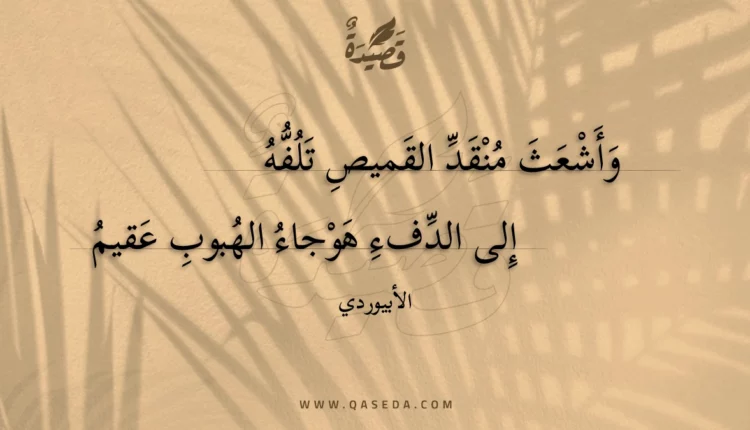 قَصِيْدَةٌ
وَأَشْعَثَ مُنْقَدِّ القَميصِ تَلُفُّهُ
إِلى الدِّفءِ هَوْجاءُ الهُبوبِ عَقيمُ
الأبيوردي
WWW.QASEDA.COM